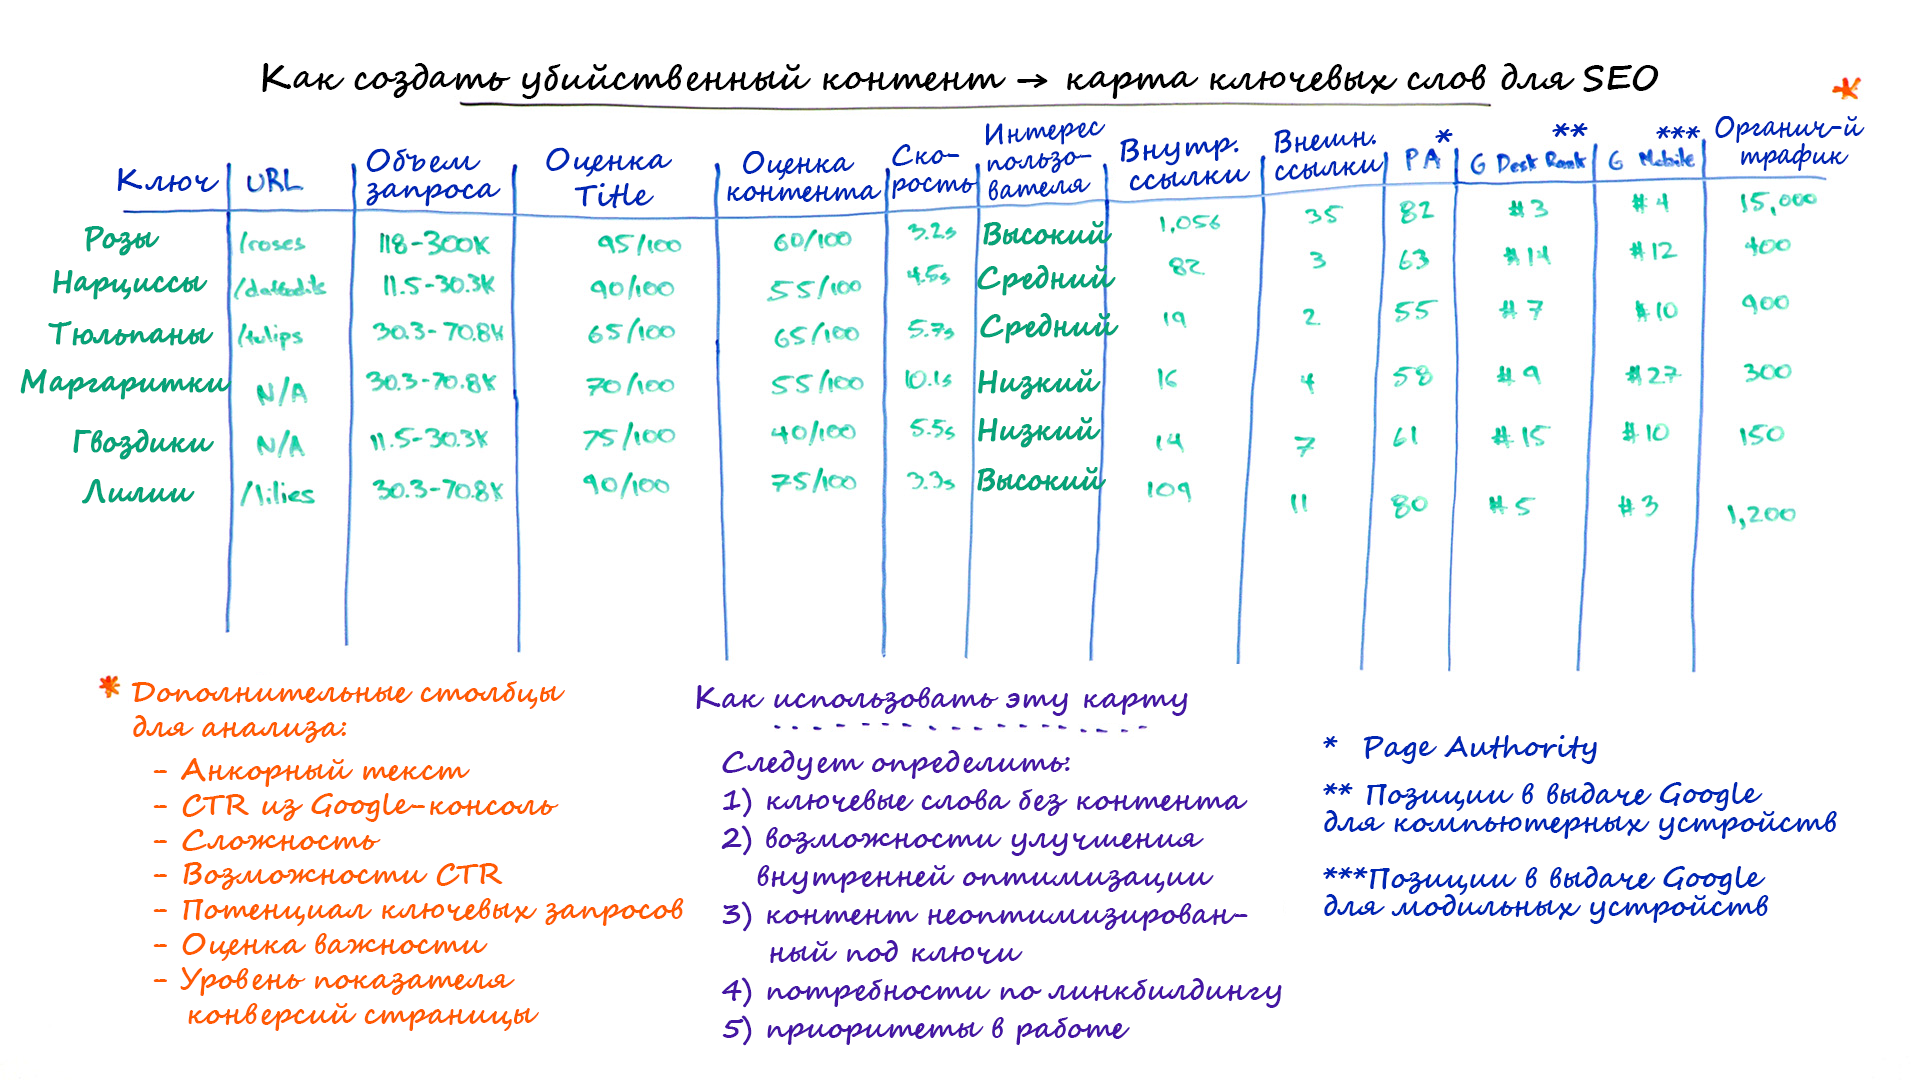 Как создать убийственный контент → карта ключевых слов для SEO
*
Ключ URL Объем запроса Оценка Title Оценка контента Ско-рость Интерес пользо-вателя Внутр. ссылки Внешн. ссылки PA* G Desk Rank** G Mobile*** Органич-й трафик
Розы /roses 118-300K 95/100 60/100 3.2s Высокий 1,056 35 82 #3 #4 15,000
Нарциссы /daffodils 11.5-30.3K 90/100 55/100 4.5s Средний 82 3 63 #14 #12 400
Тюльпаны /tulips 30.3-70.8K 65/100 65/100 5.7s Средний 19 2 55 #7 #10 900
Маргаритки N/A 30.3-70.8K 70/100 55/100 10.1s Низкий 16 4 58 #9 #27 300
Гвоздики N/A 11.5-30.3K 75/100 40/100 5.5s Низкий 14 7 61 #15 #10 150
Лилии /lilies 30.3-70.8K 90/100 75/100 3.3s Высокий 109 11 80 #5 #3 1,200
* Дополнительные столбцы
для анализа:
- Анкорный текст
- CTR из Google-консоль
- Сложность
- Возможности CTR
- Потенциал ключевых запросов
- Оценка важности
- Уровень показателя
конверсий страницы
Как использовать эту карту
Следует определить:
1) ключевые слова без контента
2) возможности улучшения
внутренней оптимизации
3) контент неоптимизирован-
ный под ключи
4) потребности по линкбилдингу
5) приоритеты в работе
* Page Authority
** Позиции в выдаче Google
для компьютерных устройств
***Позиции в выдаче Google
для модильных устройств